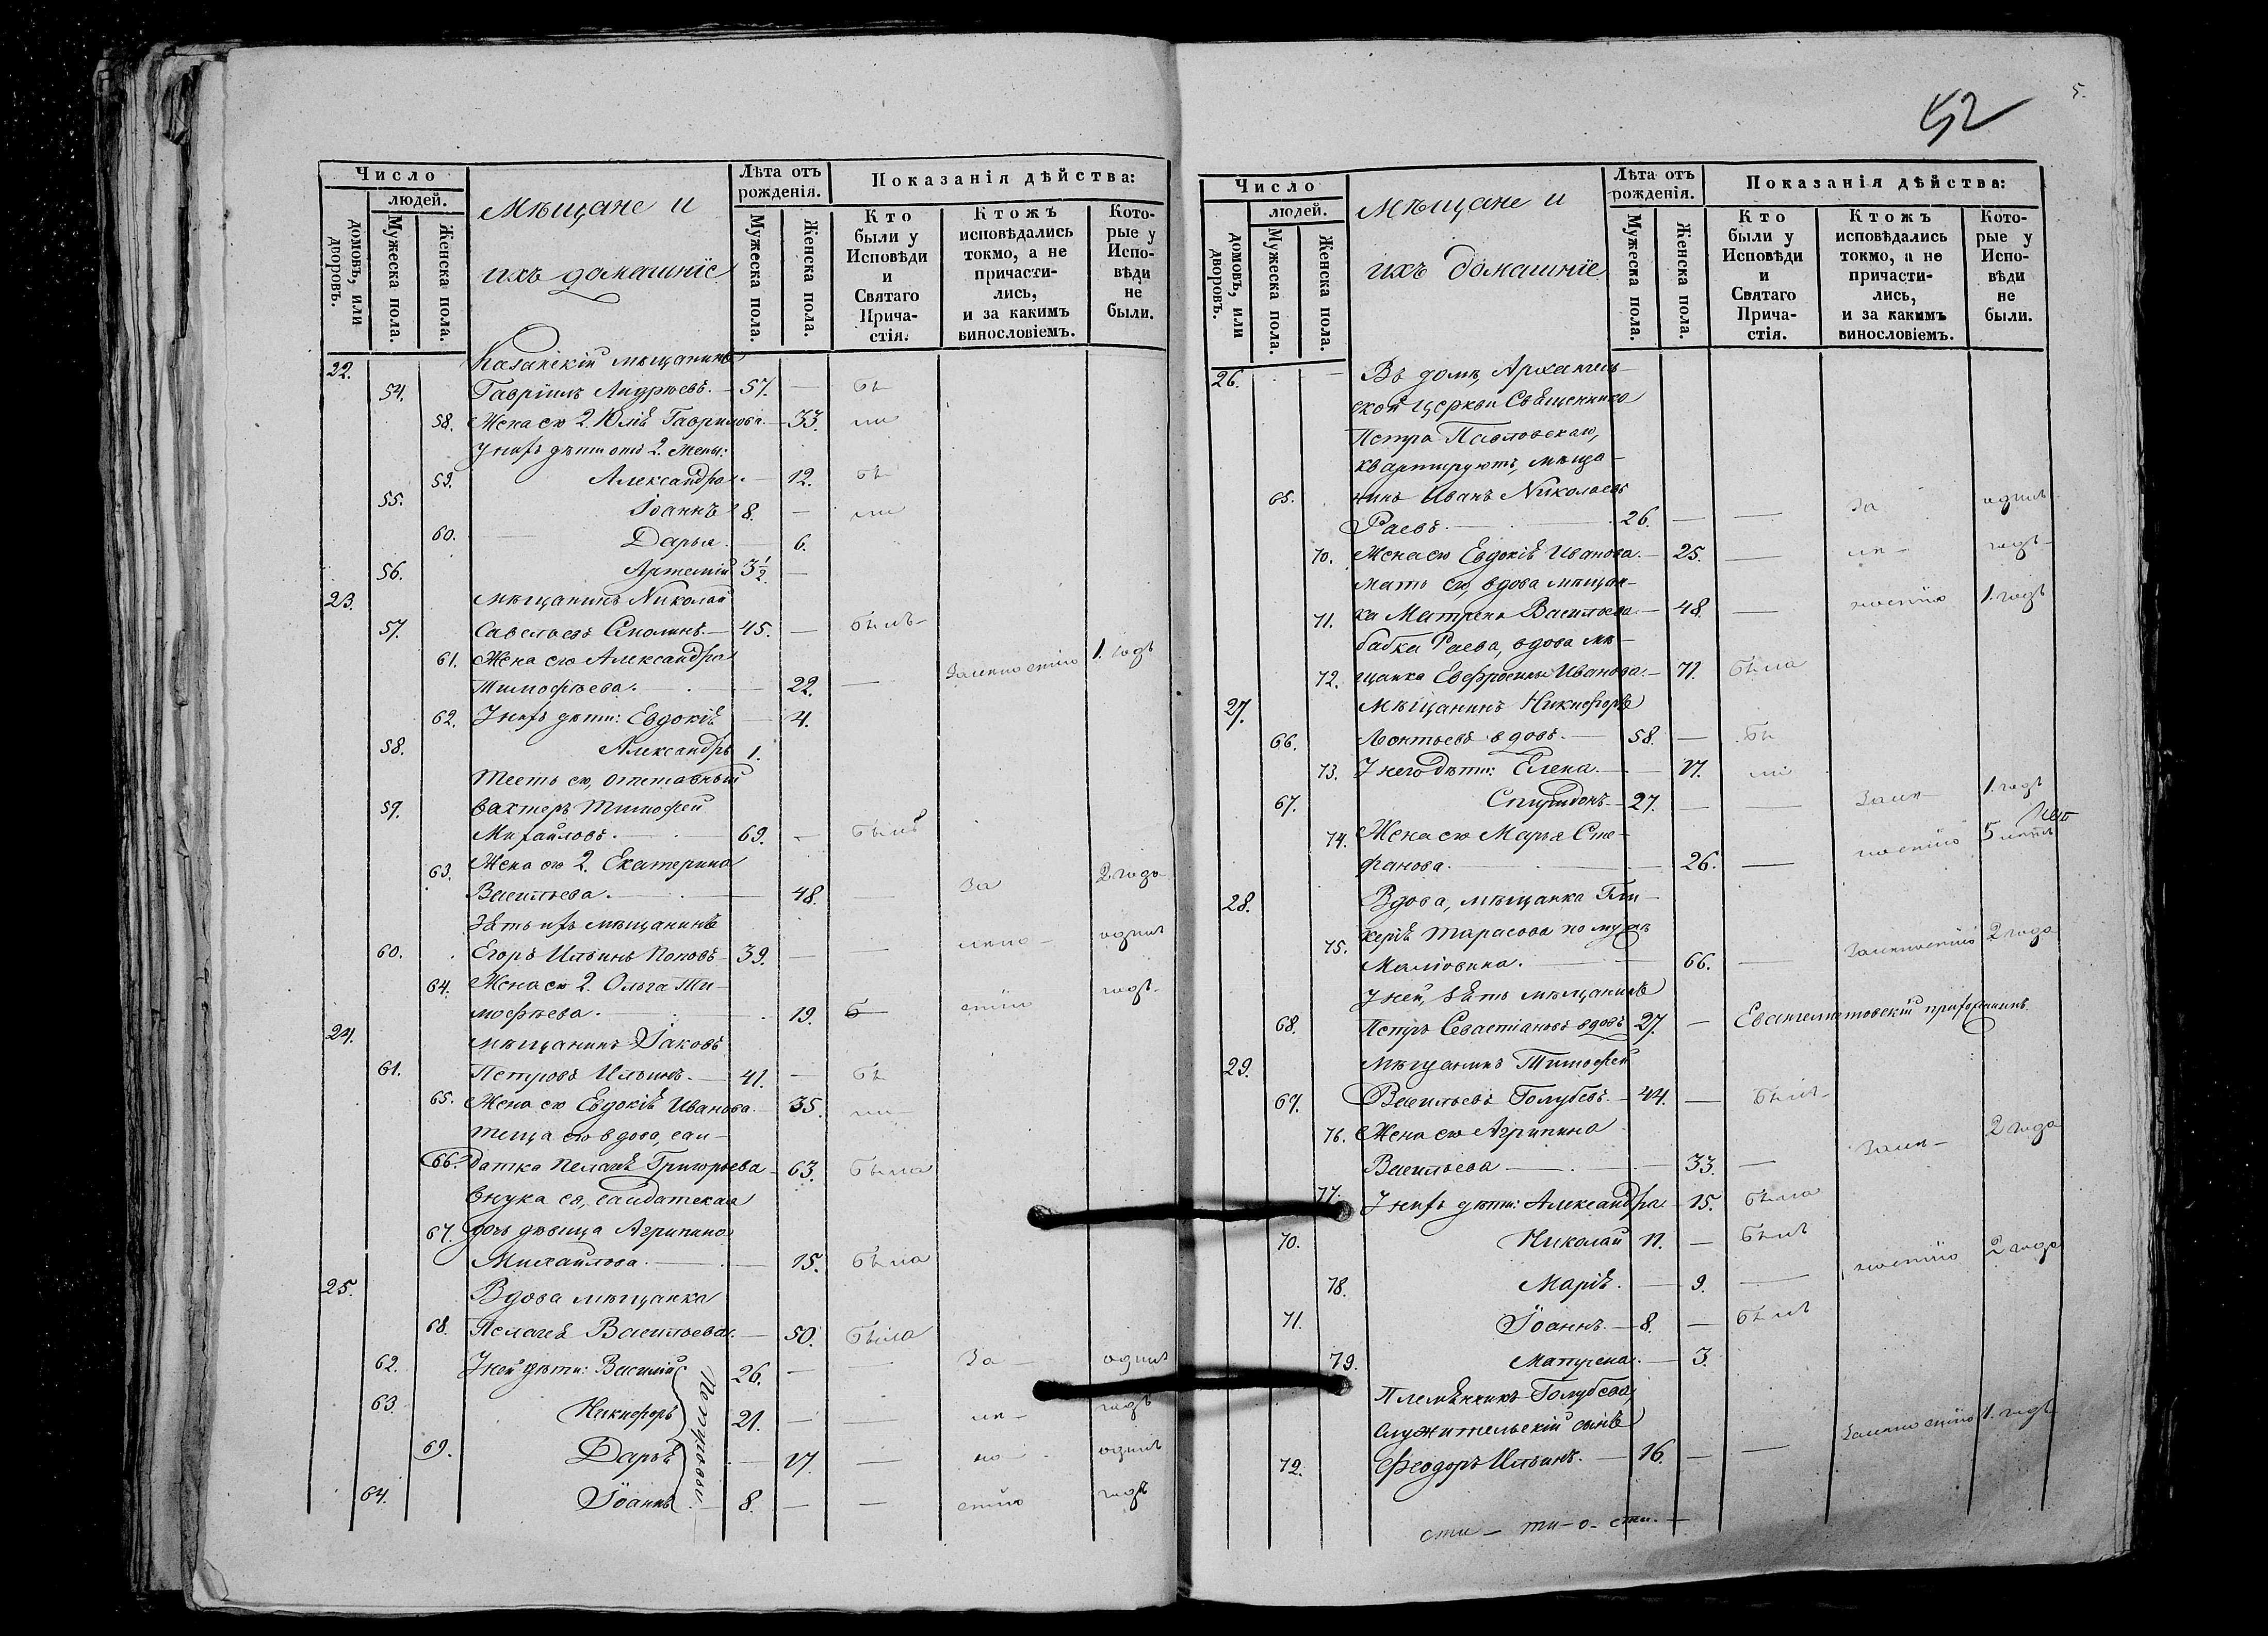 Число
людей.
домовъ, или дворовъ.
Мужеска пола.
Женска пола.
Мѣщане и
ихъ домашніе
Лѣта отъ рожденія.
Мужеска пола.
Женска пола.
Показанія дѣйства:
Кто были у Исповѣди и Святаго Прича-стія.
Ктожъ исповѣдались токмо, а не причасти-лись, и за какимъ винословіемъ.
Кото-рые у Испо-вѣди не были.
22. Казанскій мѣщанинъ
54. Гавріилъ Андреевъ. — 57. — бы
58. Жена его 2. Юлія Гаврилова. — 33. ли
У нихъ дѣти отъ 2. жены:
59. Александра. — 12. бы
55. Іоаннъ 8. — ли
60. Дарья. — 6.
56. Артемій 3½ —
23. Мѣщанинъ Николай
57. Савельевъ Смолинъ. — 45. — былъ
61. Жена его Александра
Тимофѣева. — 22. — Залѣностію 1. годъ
62. У нихъ дѣти: Евдокія — 4.
58. Александръ 1.
Тесть его, отставный
59. вахтеръ Тимофей
Михайловъ. — 69. — былъ
63. Жена его 2. Екатерина
Васильева. — 48. — За 2 года
Зять ихъ мѣщанинъ
60. Егоръ Ильинъ Поповъ — 39. — — лѣно- одинъ
64. Жена его 2. Ольга Ти-
мофѣева. — 19. стію годъ
24. Мѣщанинъ Іаковъ
61. Петровъ Ильинъ. — 41. — бы
65. Жена его Евдокія Иванова. — 35. ли
Теща его вдова, сал-
66. датка Пелагія Григорьева — 63. была
Внука ея, салдатская
67. дочь дѣвица Агрипина
Михайлова. — 15. была
25. Вдова мѣщанка
68. Пелагія Васильева. — 50. была
62. У ней дѣти: Василій 26. — — За одинъ
63. Никифоръ 21. — — лѣ- годъ
69. Дарья — 17. — но- одинъ
64. Іоаннъ 8. — — стію годъ
52
5.
Число
людей.
домовъ, или дворовъ.
Мужеска пола.
Женска пола.
Мѣщане и
ихъ домашніе
Лѣта отъ рожденія.
Мужеска пола.
Женска пола.
Показанія дѣйства:
Кто были у Исповѣди и Святаго Прича-стія.
Ктожъ исповѣдались токмо, а не причасти-лись, и за какимъ винословіемъ.
Кото-рые у Испо-вѣди не были.
26. Въ домѣ, Архангель-
ской церкви Священника
Петра Павловскаго,
квартируютъ, мѣща-
65. нинъ Иванъ Николаевъ
Раевъ. — 26. — — За одинъ
70. Жена его Евдокія Иванова. — 25. — лѣ- годъ
Мать его, вдова мѣщан-
71. ка Матрена Васильева — 48. — ностію 1. годъ
бабка Раева, вдова мѣ-
72. щанка Евфросинья Иванова. — 71. была
27. Мѣщанинъ Никифоръ
66. Леонтьевъ вдовъ. — 58. — бы
73. У него дѣти: Елена. — 17. ли
67. Спиридонъ — 27. — — Залѣ- 1. годъ
74. Жена его Марья Сте-
фанова. — 26. — ностію 5 лѣтъ
28. Вдова, мѣщанка Гли-
75. керія Тарасова по мужѣ
66. — Залѣностію 2 года
У ней, зять мѣщанинъ
68. Петръ Севастіановъ вдовъ 27. — Евангелистовскій прихожанинъ
29. Мѣщанинъ Тимофей
69. Васильевъ Голубевъ. — 44. — былъ
76. Жена его Агрипина
Васильева — 33. — Залѣ- 2 года
77. У нихъ дѣти: Александра — 15. была
70. Николай 11. — былъ
78. Марія. — 9. — ностію 2 года
71. Іоаннъ. — 8. — былъ
79. Матрена. — 3.
Племянникъ Голубева,
служительскій сынъ
72. Феодоръ Ильинъ. — 16. — — Залѣностію 1. годъ
сти — ти-о- сти. —